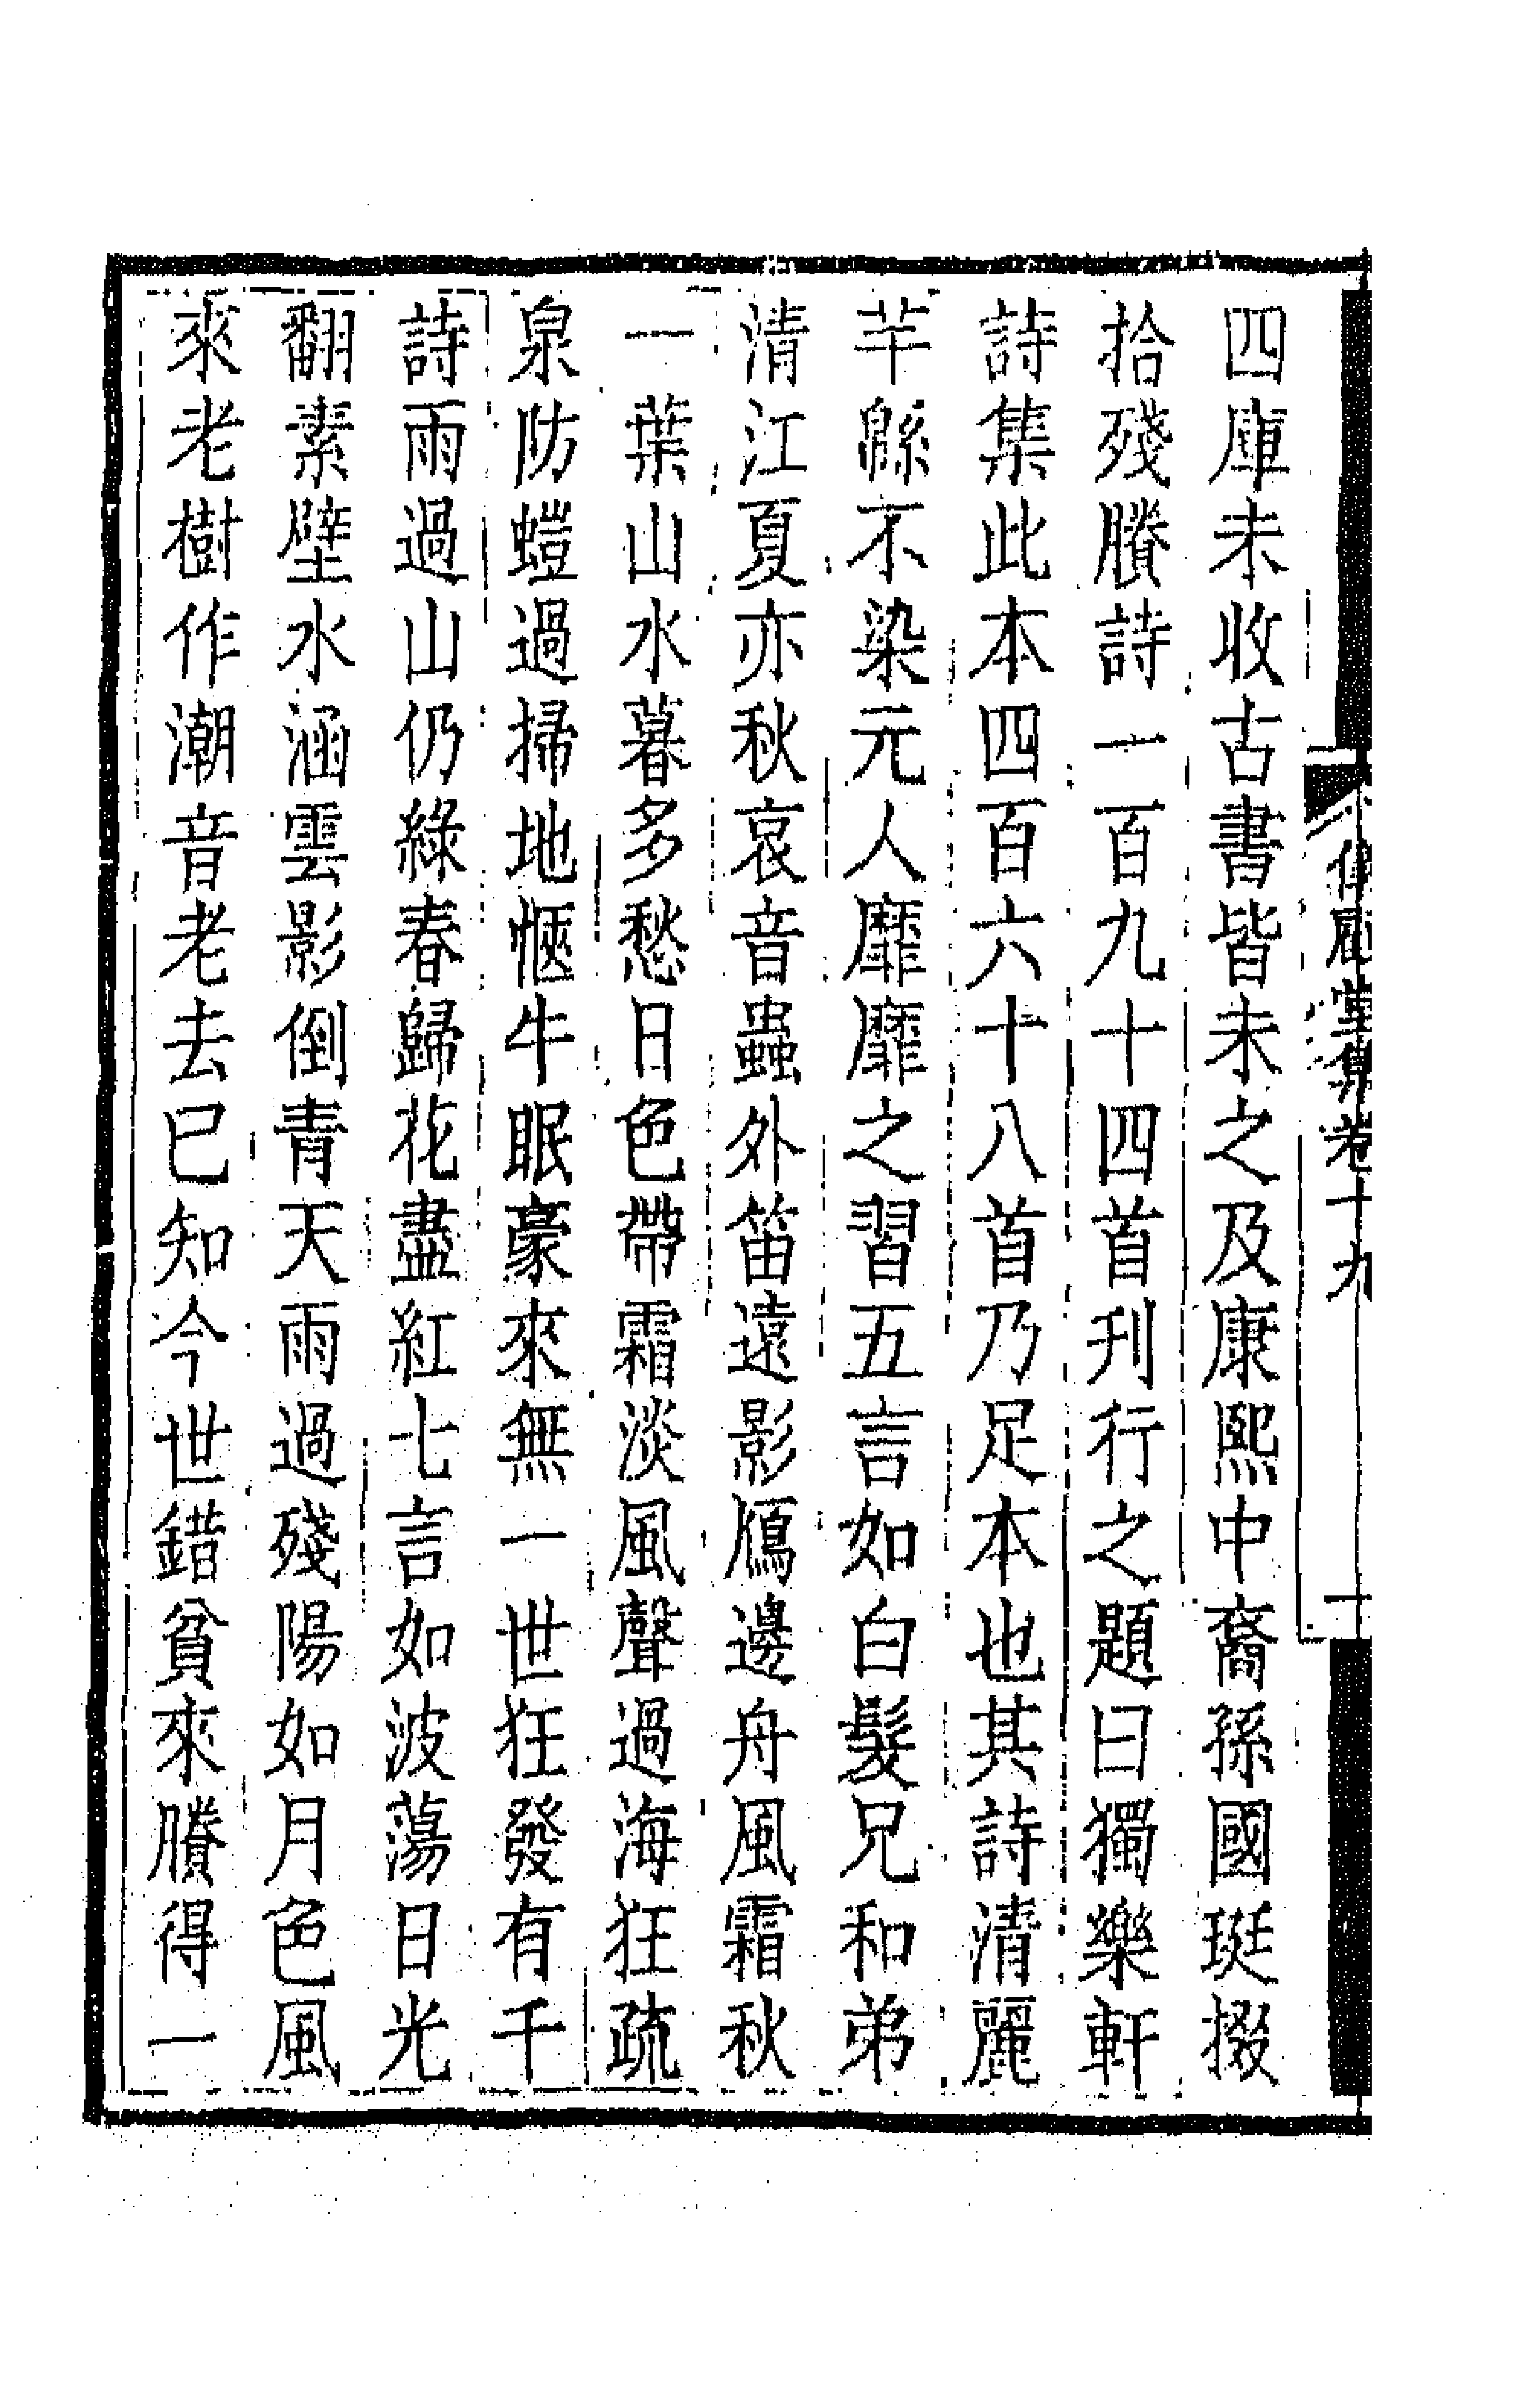 四庫未收古書皆未之及康熙中裔孫國珽掇
拾殘賸詩一百九十四首刋行之題曰獨樂軒
詩集此本四百六十八首乃足本也其詩清麗
芊緜不染元人靡靡之習五言如白髮兄和弟
清江夏亦秋哀音蟲外笛遠影鴈邊舟風霜秋
一葉山水暮多愁日色帶霜淡風聲過海狂疏
泉防螘過掃地愜牛眠豪來無一世狂發有千
詩雨過山仍綠春歸花盡紅七言如波蕩日光
翻素壁水涵雲影倒青天雨過殘陽如月色風
來老樹作潮音老去已知今世錯貧來賸得一
卷十九
一